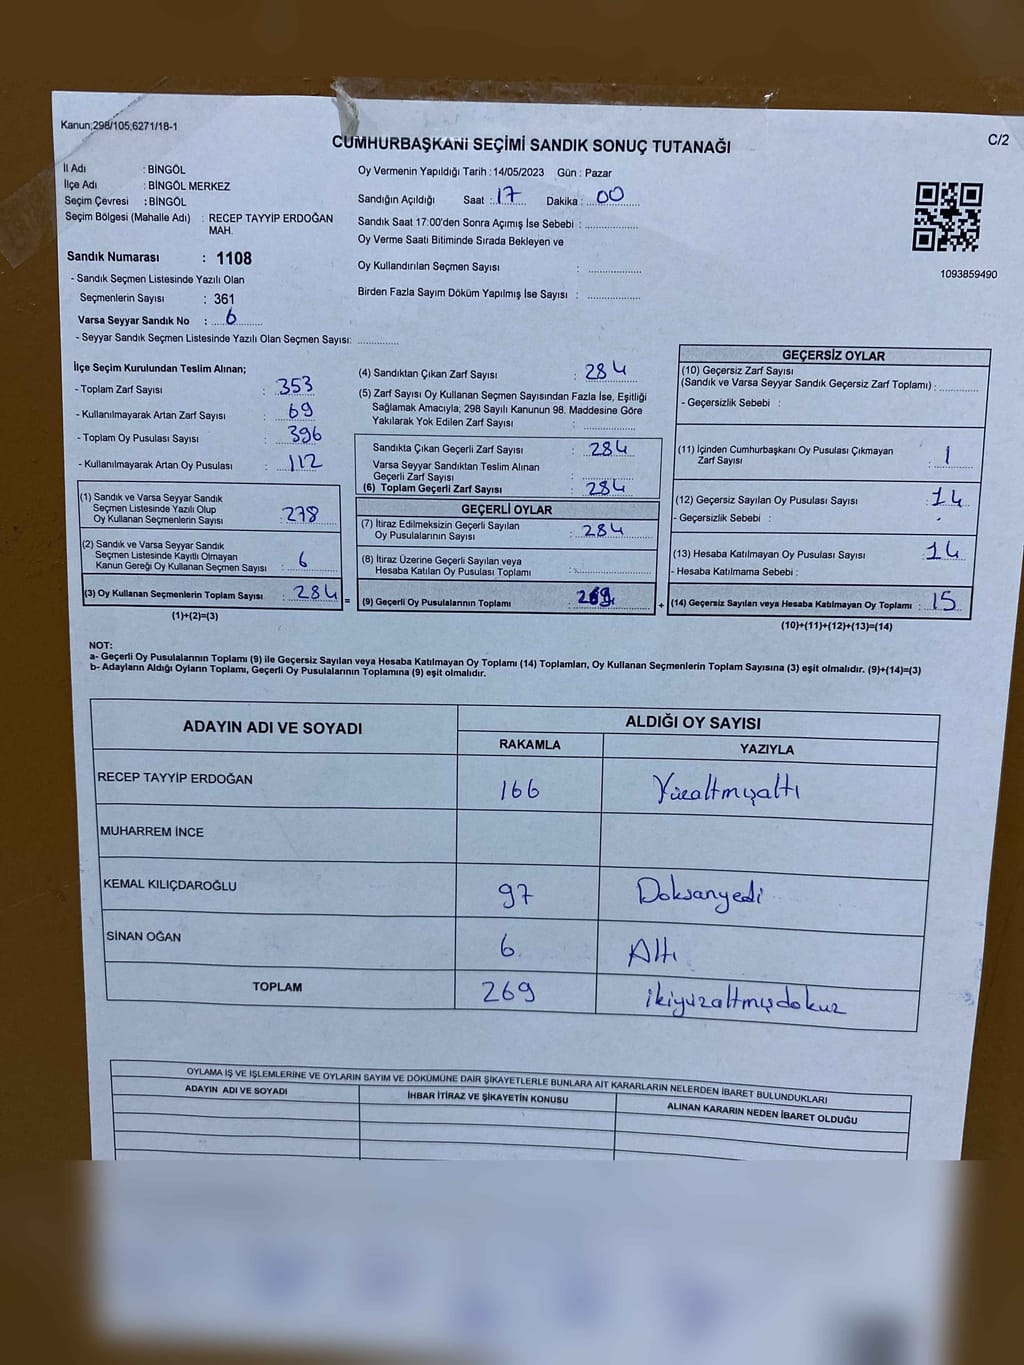 Kanun;298/105;6271/18-1
CUMHURBAŞKANI SEÇİMİ SANDIK SONUÇ TUTANAĞI
C/2
İl Adı : BİNGÖL
İlçe Adı : BİNGÖL MERKEZ
Seçim Çevresi : BİNGÖL
Seçim Bölgesi (Mahalle Adı) : RECEP TAYYİP ERDOĞAN
MAH.
Sandık Numarası : 1108
- Sandık Seçmen Listesinde Yazılı Olan
Seçmenlerin Sayısı : 361
Varsa Seyyar Sandık No : 6
- Seyyar Sandık Seçmen Listesinde Yazılı Olan Seçmen Sayısı: ..............
Oy Vermenin Yapıldığı Tarih : 14/05/2023 Gün : Pazar
Sandığın Açıldığı Saat : 17 Dakika : 00
Sandık Saat 17:00'den Sonra Açımış İse Sebebi : ..................
Oy Verme Saati Bitiminde Sırada Bekleyen ve
Oy Kullandırılan Seçmen Sayısı : ..................
Birden Fazla Sayım Döküm Yapılmış İse Sayısı : ..................
1093859490
İlçe Seçim Kurulundan Teslim Alınan;
- Toplam Zarf Sayısı : 353
- Kullanılmayarak Artan Zarf Sayısı : 69
- Toplam Oy Pusulası Sayısı : 396
- Kullanılmayarak Artan Oy Pusulası : 112
(1) Sandık ve Varsa Seyyar Sandık
Seçmen Listesinde Yazılı Olup
Oy Kullanan Seçmenlerin Sayısı : 278
(2) Sandık ve Varsa Seyyar Sandık
Seçmen Listesinde Kayıtlı Olmayan
Kanun Gereği Oy Kullanan Seçmen Sayısı : 6
(3) Oy Kullanan Seçmenlerin Toplam Sayısı : 284 =
(1)+(2)=(3)
(4) Sandıktan Çıkan Zarf Sayısı : 284
(5) Zarf Sayısı Oy Kullanan Seçmen Sayısından Fazla İse, Eşitliği
Sağlamak Amacıyla; 298 Sayılı Kanunun 98. Maddesine Göre
Yakılarak Yok Edilen Zarf Sayısı : ..................
Sandıkta Çıkan Geçerli Zarf Sayısı : 284
Varsa Seyyar Sandıktan Teslim Alınan
Geçerli Zarf Sayısı : ..................
(6) Toplam Geçerli Zarf Sayısı : 284
GEÇERLİ OYLAR
(7) İtiraz Edilmeksizin Geçerli Sayılan
Oy Pusulalarının Sayısı : 284
(8) İtiraz Üzerine Geçerli Sayılan veya
Hesaba Katılan Oy Pusulası Toplamı : ..................
(9) Geçerli Oy Pusulalarının Toplamı : 269 +
GEÇERSİZ OYLAR
(10) Geçersiz Zarf Sayısı
(Sandık ve Varsa Seyyar Sandık Geçersiz Zarf Toplamı) : ..............
- Geçersizlik Sebebi :
(11) İçinden Cumhurbaşkanı Oy Pusulası Çıkmayan
Zarf Sayısı : 1
(12) Geçersiz Sayılan Oy Pusulası Sayısı : 14
- Geçersizlik Sebebi :
(13) Hesaba Katılmayan Oy Pusulası Sayısı : 14
- Hesaba Katılmama Sebebi :
(14) Geçersiz Sayılan veya Hesaba Katılmayan Oy Toplamı : 15
(10)+(11)+(12)+(13)=(14)
NOT:
a- Geçerli Oy Pusulalarının Toplamı (9) ile Geçersiz Sayılan veya Hesaba Katılmayan Oy Toplamı (14) Toplamları, Oy Kullanan Seçmenlerin Toplam Sayısına (3) eşit olmalıdır. (9)+(14)=(3)
b- Adayların Aldığı Oyların Toplamı, Geçerli Oy Pusulalarının Toplamına (9) eşit olmalıdır.
ADAYIN ADI VE SOYADI
ALDIĞI OY SAYISI
RAKAMLA YAZIYLA
RECEP TAYYİP ERDOĞAN 166 Yüzaltmışaltı
MUHARREM İNCE
KEMAL KILIÇDAROĞLU 97 Doksanyedi
SİNAN OĞAN 6 Altı
TOPLAM 269 ikiyüzaltmışdokuz
OYLAMA İŞ VE İŞLEMLERİNE VE OYLARIN SAYIM VE DÖKÜMÜNE DAİR ŞİKAYETLERLE BUNLARA AİT KARARLARIN NELERDEN İBARET BULUNDUKLARI
ADAYIN ADI VE SOYADI İHBAR İTİRAZ VE ŞİKAYETİN KONUSU ALINAN KARARIN NEDEN İBARET OLDUĞU